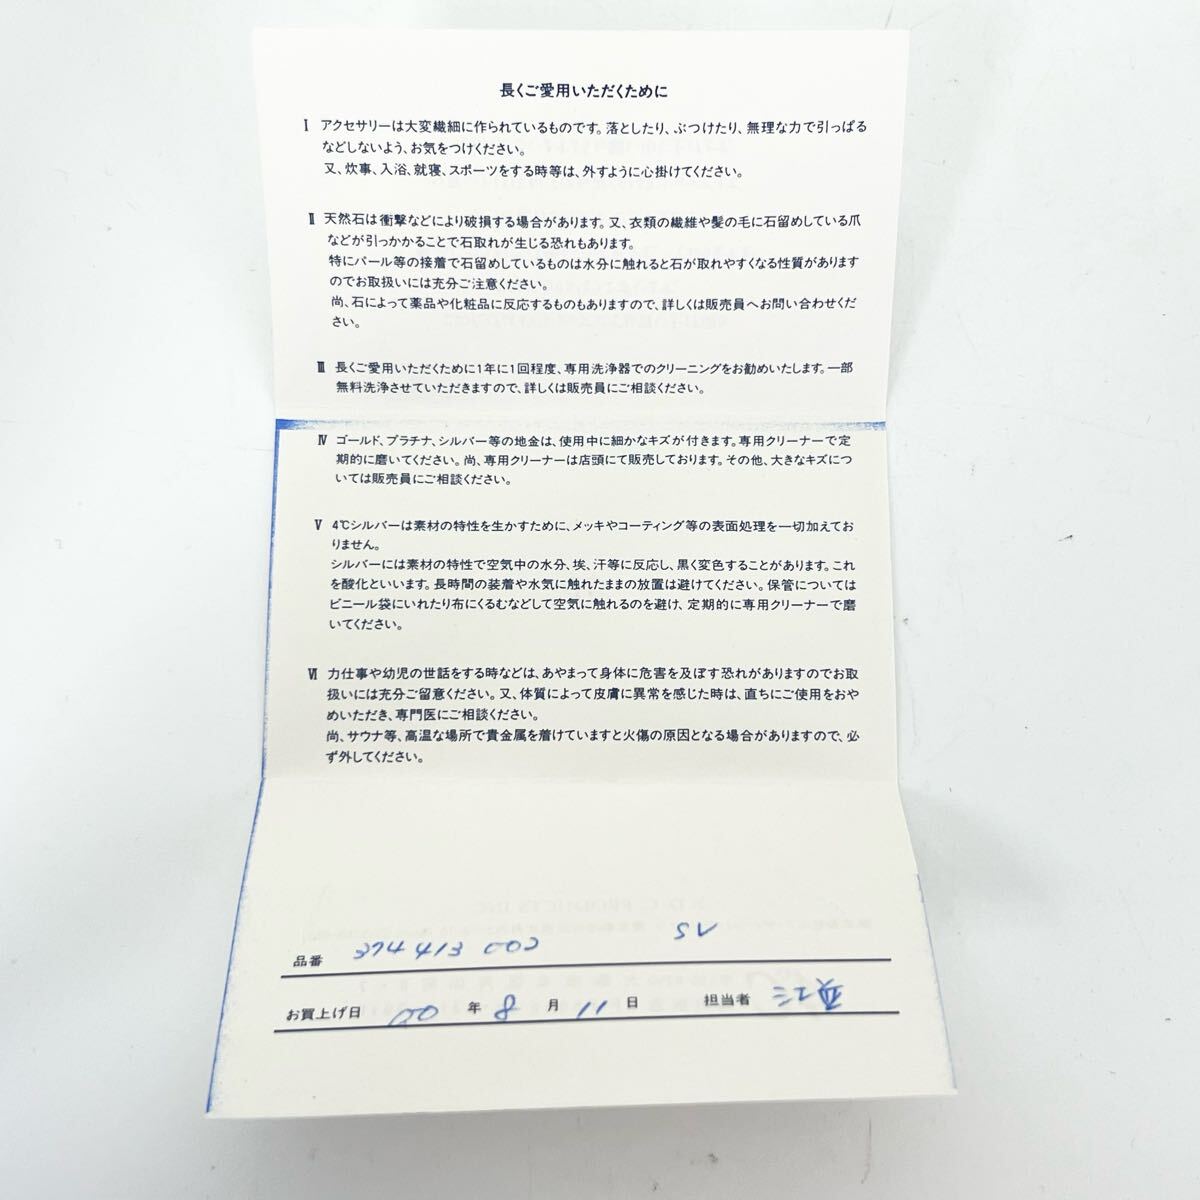 長くご愛用いただくために
Ⅰ アクセサリーは大変繊細に作られているものです。落としたり、ぶつけたり、無理な力で引っぱる
などしないよう、お気をつけください。
又、炊事、入浴、就寝、スポーツをする時等は、外すように心掛けてください。
Ⅱ 天然石は衝撃などにより破損する場合があります。又、衣類の繊維や髪の毛に石留めしている爪
などが引っかかることで石取れが生じる恐れもあります。
特にパール等の接着で石留めしているものは水分に触れると石が取れやすくなる性質があります
のでお取扱いには充分ご注意ください。
尚、石によって薬品や化粧品に反応するものもありますので、詳しくは販売員へお問い合わせくだ
さい。
Ⅲ 長くご愛用いただくために1年に1回程度、専用洗浄器でのクリーニングをお勧めいたします。一部
無料洗浄させていただきますので、詳しくは販売員にご相談ください。
Ⅳ ゴールド、プラチナ、シルバー等の地金は、使用中に細かなキズが付きます。専用クリーナーで定
期的に磨いてください。尚、専用クリーナーは店頭にて販売しております。その他、大きなキズにつ
いては販売員にご相談ください。
Ⅴ 4℃シルバーは素材の特性を生かすために、メッキやコーティング等の表面処理を一切加えてお
りません。
シルバーには素材の特性で空気中の水分、埃、汗等に反応し、黒く変色することがあります。これ
を酸化といいます。長時間の装着や水気に触れたままの放置は避けてください。保管については
ビニール袋にいれたり布にくるむなどして空気に触れるのを避け、定期的に専用クリーナーで磨
いてください。
Ⅵ 力仕事や幼児の世話をする時などは、あやまって身体に危害を及ぼす恐れがありますのでお取
扱いには充分ご留意ください。又、体質によって皮膚に異常を感じた時は、直ちにご使用をおや
めいただき、専門医にご相談ください。
尚、サウナ等、高温な場所で貴金属を着けていますと火傷の原因となる場合がありますので、必
ず外してください。
品番 374 413 002 SV
お買上げ日 00 年 8 月 11 日 担当者